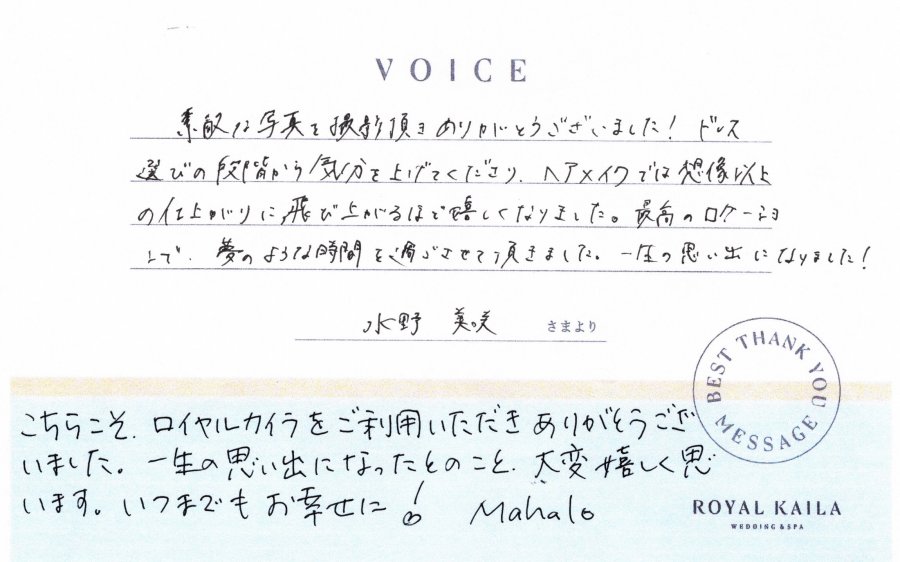 VOICE
素敵な写真を撮影頂きありがとうございました！ ドレス
選びの段階から気分を上げてくださり、ヘアメイクでは想像以上
の仕上がりに飛び上がるほど嬉しくなりました。最高のロケーショ
ンで、夢のような時間を過ごさせて頂きました。一生の思い出になりました！
水野 美咲 さまより
BEST THANK YOU MESSAGE
こちらこそ、ロイヤルカイラをご利用いただきありがとうござ
いました。一生の思い出になったとのこと、大変嬉しく思
います。いつまでもお幸せに！ Mahalo
ROYAL KAILA
WEDDING & SPA